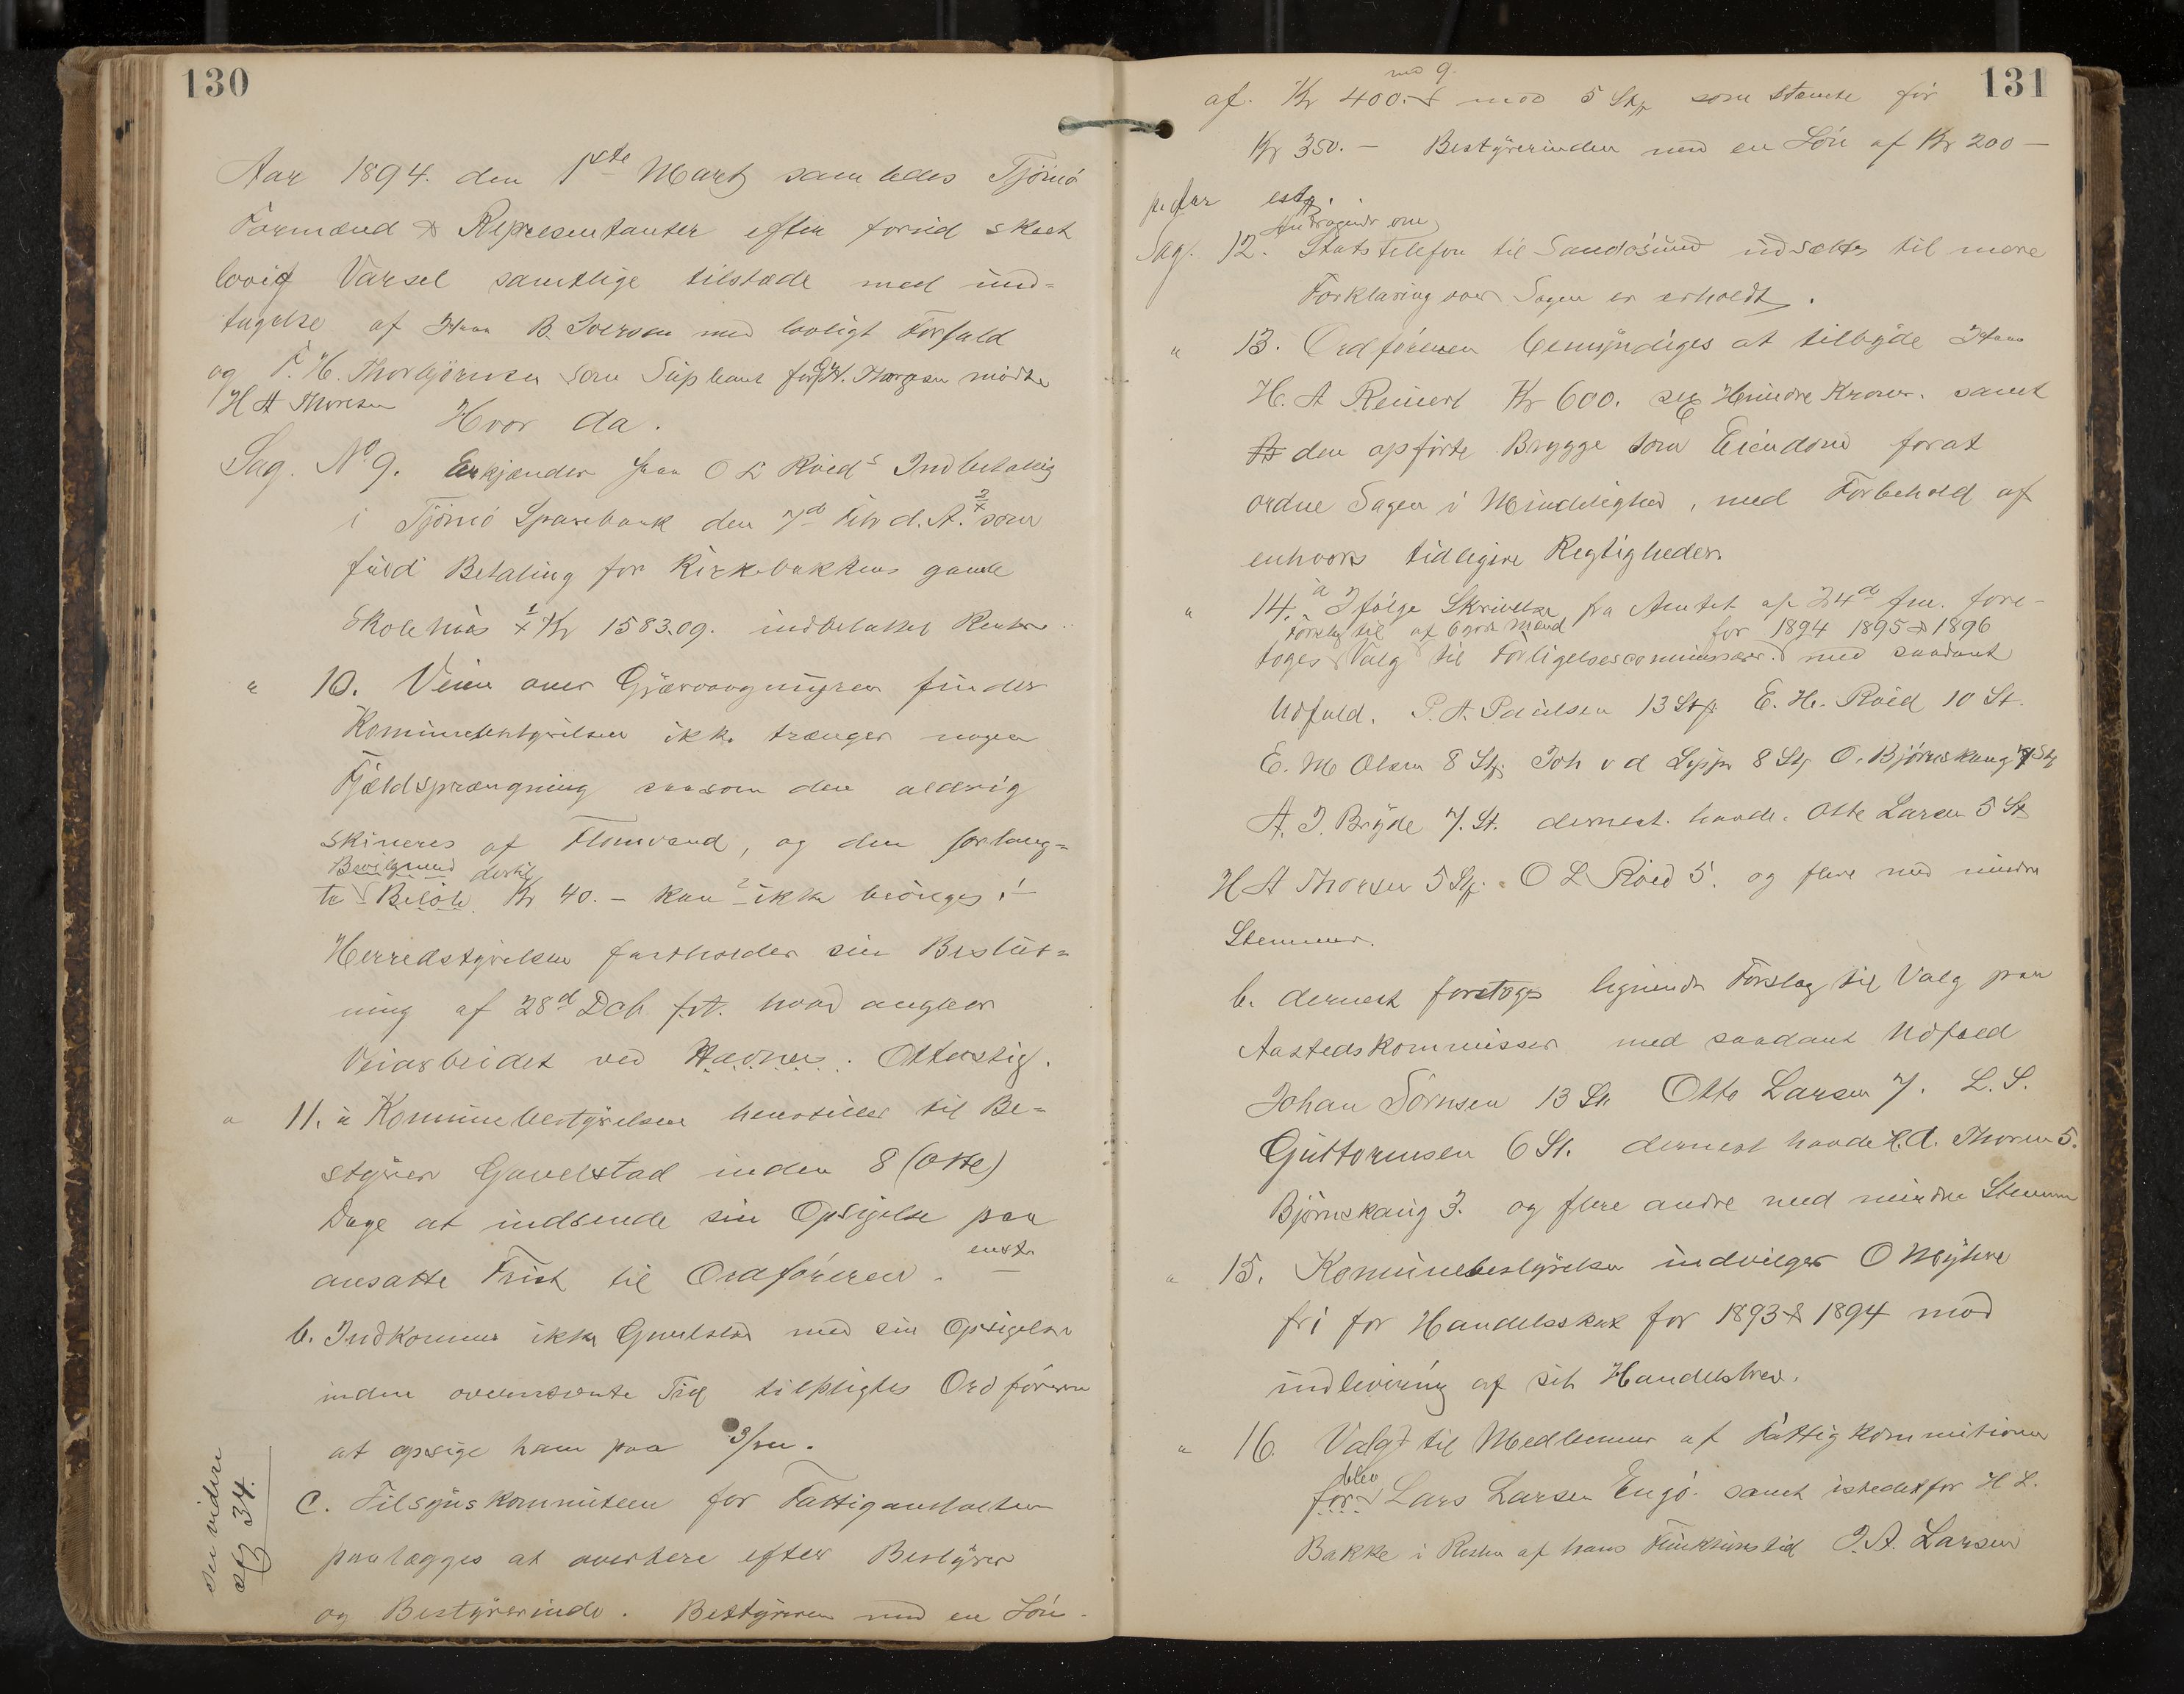 130
Aar 1894. den 1ste Marts samledes Tjömö
Formænd & Representanter efter forud skeet
lovig Varsel samtlige tilstæde med und=
tagelse af Hans B. Iversen med lovligt Forfald
og F. H. Thorbjörnsen som Supleant for Thoresen mödte
H A Thoresen Hvor da.
Sag. No 9. Erkjænder fra O L Röed's Indbetaling
i Tjömö Sparebank den 7de Febr d. A. som
fuld Betaling for Kirkebakkens gamle
Skolehuus Kr 1583.09. indbetalket Renter
" 10. Veien over Gjærvaagmyren finder
Kommunebestyrelsen ikke trænger nogen
Fjeldsprængning saasom den aldrig
skineres af Flomvand, og den forlang=
Bevilgned dertil
te Belöb Kr 40.- kan ikke beönges!
Herredstyrelsen fastholder sin Beslut=
ning af 28d Dcb. f.A. hvad angaaer
Veiarbeidet ved Havna. Ottustig.
" 11. a Kommunebestyrelsen henstiller til Be=
styrer Gavelstad inden 8 (Otte)
Dage at indsende sin Opsigelse paa
ansatte Frist til Ordföreren.
b. Indkommer ikke Gavelstad med sin Opsigelse
inden ovennævnte Tid tilpligtes Ordföreren
at opsige ham paa
C. Tilsynskommiteen for Fattiganstalten
paalægges at avertere efter Bestyrer
og Bestyrerinde. Bestyreren med en Lön
Se videre
Sag 34.
131
mod 9
af. Kr 400.- mod 5 St som stemte for
Kr 350.- Bestyrerinden med en Lön af Kr 200 —
pr Aar
Andragende om
Sag. 12. Statstelefon til Sandösund udsættes til mere
Forklaring over Sagen er erholdt.
" 13. Ordföreren bemyndiges at tilbyde Hans
H. A Reinert Kr 600. sex Hundre Kroner. samt
den opförte Brygge som Eiendom forat
ordne Sagen i Mindelighed, med Forbehold af
enhvers tidligere Regtigheder
" 14. a Ifölge Skrivelse fra Amtet af 24d fm. fore-
Forslag til af 6 gode Mænd for 1894 1895 & 1896
toges Valg til Forligelsescommissærer. med saadant
Udfald. P. A. Paulsen 13 St E. H. Röed 10 St.
E. M Olsen 8 St. Joh v d Lippe 8 St O. Björnskaug 7 St
A. J. Bryde 7. St. dernest. havde. Otte Larsen 5 St
H A Thoresen 5 St. O L Röed 5. og flere med mindre
Stemmer.
b. dernest foretoges lignende Forslag til Valg paa
Aastedskommisser med saadant Udfald
Johan Sörnsen 13 St. Otto Larsen 7. L. S.
Guttormsen 6 St. dernest havde H. A. Thoresen 5.
Björnskaug 3. og flere andre med mindre Stemmer
" 15. Kommunebestyrelsen indvilger O Myhre
fri for Handelsskat for 1893 & 1894 mod
indlevering af sit Handelsbrev.
" 16. Valgt til Medlemmer af Fattigkommitionen
blev
for Lars Larsen Engö. samt istedetfor H L.
Bakke i Resten af hans Funktionstid J. A. Larsen